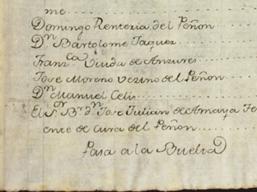 me
Domingo Renteria del Peñon
Dn Bartolome Jaquez
Franca Viuda de Anzures
Jose Moreno Vezino del Peñon
Dn Manuel Celi
El Sor Br Dn Jose Julian de Amaya Te
ente de Cura del Peñon
Pasa a la Buelta